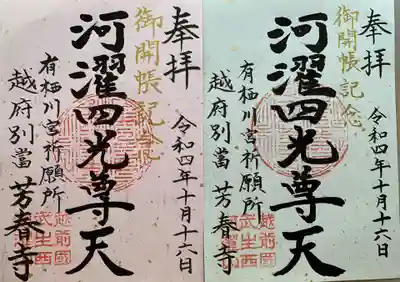 奉拝
御開帳記念
河濯四光尊天
有栖川宮祈願所
越府別當 芳春寺
令和四年十月十六日
越前國
武生西
奉拝
御開帳記念
河濯四光尊天
有栖川宮祈願所
越府別當 芳春寺
令和四年十月十六日
越前國
武生西